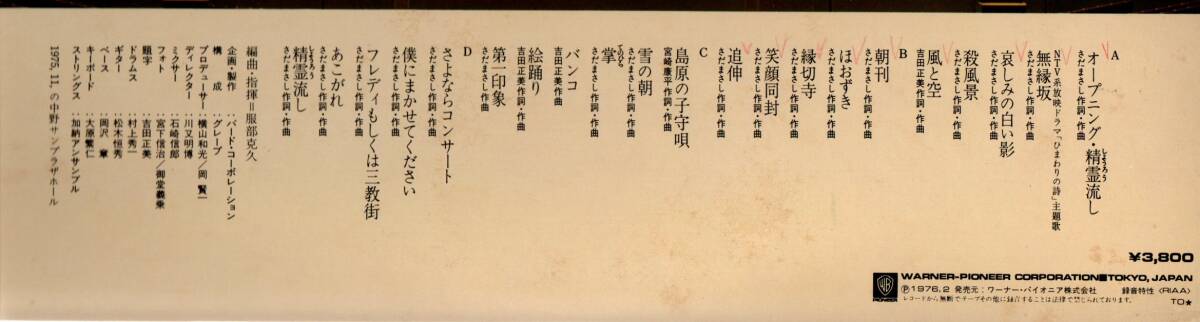 A
オープニング・精霊流し
しょうろう
さだまさし作詞・作曲
無縁坂
NTV系放映ドラマ「ひまわりの詩」主題歌
さだまさし作詞・作曲
哀しみの白い影
さだまさし作詞・作曲
殺風景
さだまさし作詞・作曲
風と空
吉田正美作詞・作曲
B
朝刊
さだまさし作詞・作曲
ほおずき
さだまさし作詞・作曲
縁切寺
さだまさし作詞・作曲
笑顔同封
さだまさし作詞・作曲
追伸
さだまさし作詞・作曲
C
島原の子守唄
宮崎康平作詞・作曲
雪の朝
さだまさし作詞・作曲
掌
てのひら
さだまさし作詞・作曲
バンコ
吉田正美作曲
絵踊り
吉田正美作詞・作曲
第一印象
さだまさし作曲
D
さよならコンサート
さだまさし作詞・作曲
僕にまかせてください
さだまさし作詞・作曲
フレディもしくは三教街
さだまさし作詞・作曲
あこがれ
さだまさし作詞・作曲
精霊流し
しょうろう
さだまさし作詞・作曲
編曲・指揮:服部克久
企画・製作:バード・コーポレーション
構成:グレープ
プロデューサー:横山和光/岡賢一
ディレクター:川又明博
ミクサー:石崎信郎
フォト:宮下信治/御堂義乗
題字:吉田正美
ドラムス:村上秀一
ギター:松木恒秀
ベース:岡沢章
キーボード:大原繁仁
ストリングス:加納アンサンブル
1975.11.の中野サンプラザホール
¥3,800
WARNER-PIONEER CORPORATION■TOKYO, JAPAN
Ⓟ1976,2 発売元:ワーナー・パイオニア株式会社 録音特性〈RIAA〉
レコードから無断でテープその他に録音することは法律で禁じられております。 TO★